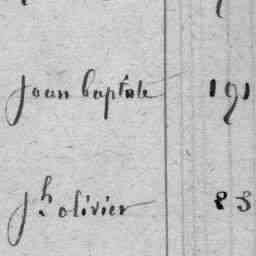 Jean baptiste 191
Jh olivier 83